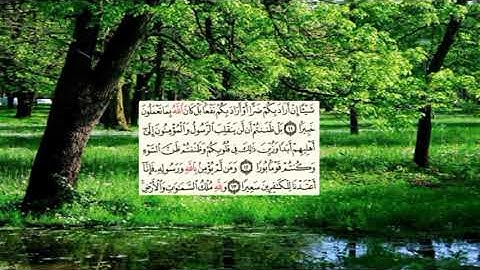 شَيْـًٔا إِنْ أَرَادَ بِكُمْ ضَرًّا أَوْ أَرَادَ بِكُمْ نَفْعًۢا بَلْ كَانَ ٱللَّهُ بِمَا تَعْمَلُونَ
خَبِيرًا ١١ بَلْ ظَنَنتُمْ أَن لَّن يَنقَلِبَ ٱلرَّسُولُ وَٱلْمُؤْمِنُونَ إِلَىٰٓ
أَهْلِيهِمْ أَبَدًا وَزُيِّنَ ذَٰلِكَ فِى قُلُوبِكُمْ وَظَنَنتُمْ ظَنَّ ٱلسَّوْءِ
وَكُنتُمْ قَوْمًۢا بُورًا ١٢ وَمَن لَّمْ يُؤْمِنۢ بِٱللَّهِ وَرَسُولِهِۦ فَإِنَّآ
أَعْتَدْنَا لِلْكَٰفِرِينَ سَعِيرًا ١٣ وَلِلَّهِ مُلْكُ ٱلسَّمَٰوَٰتِ وَٱلْأَرْضِ